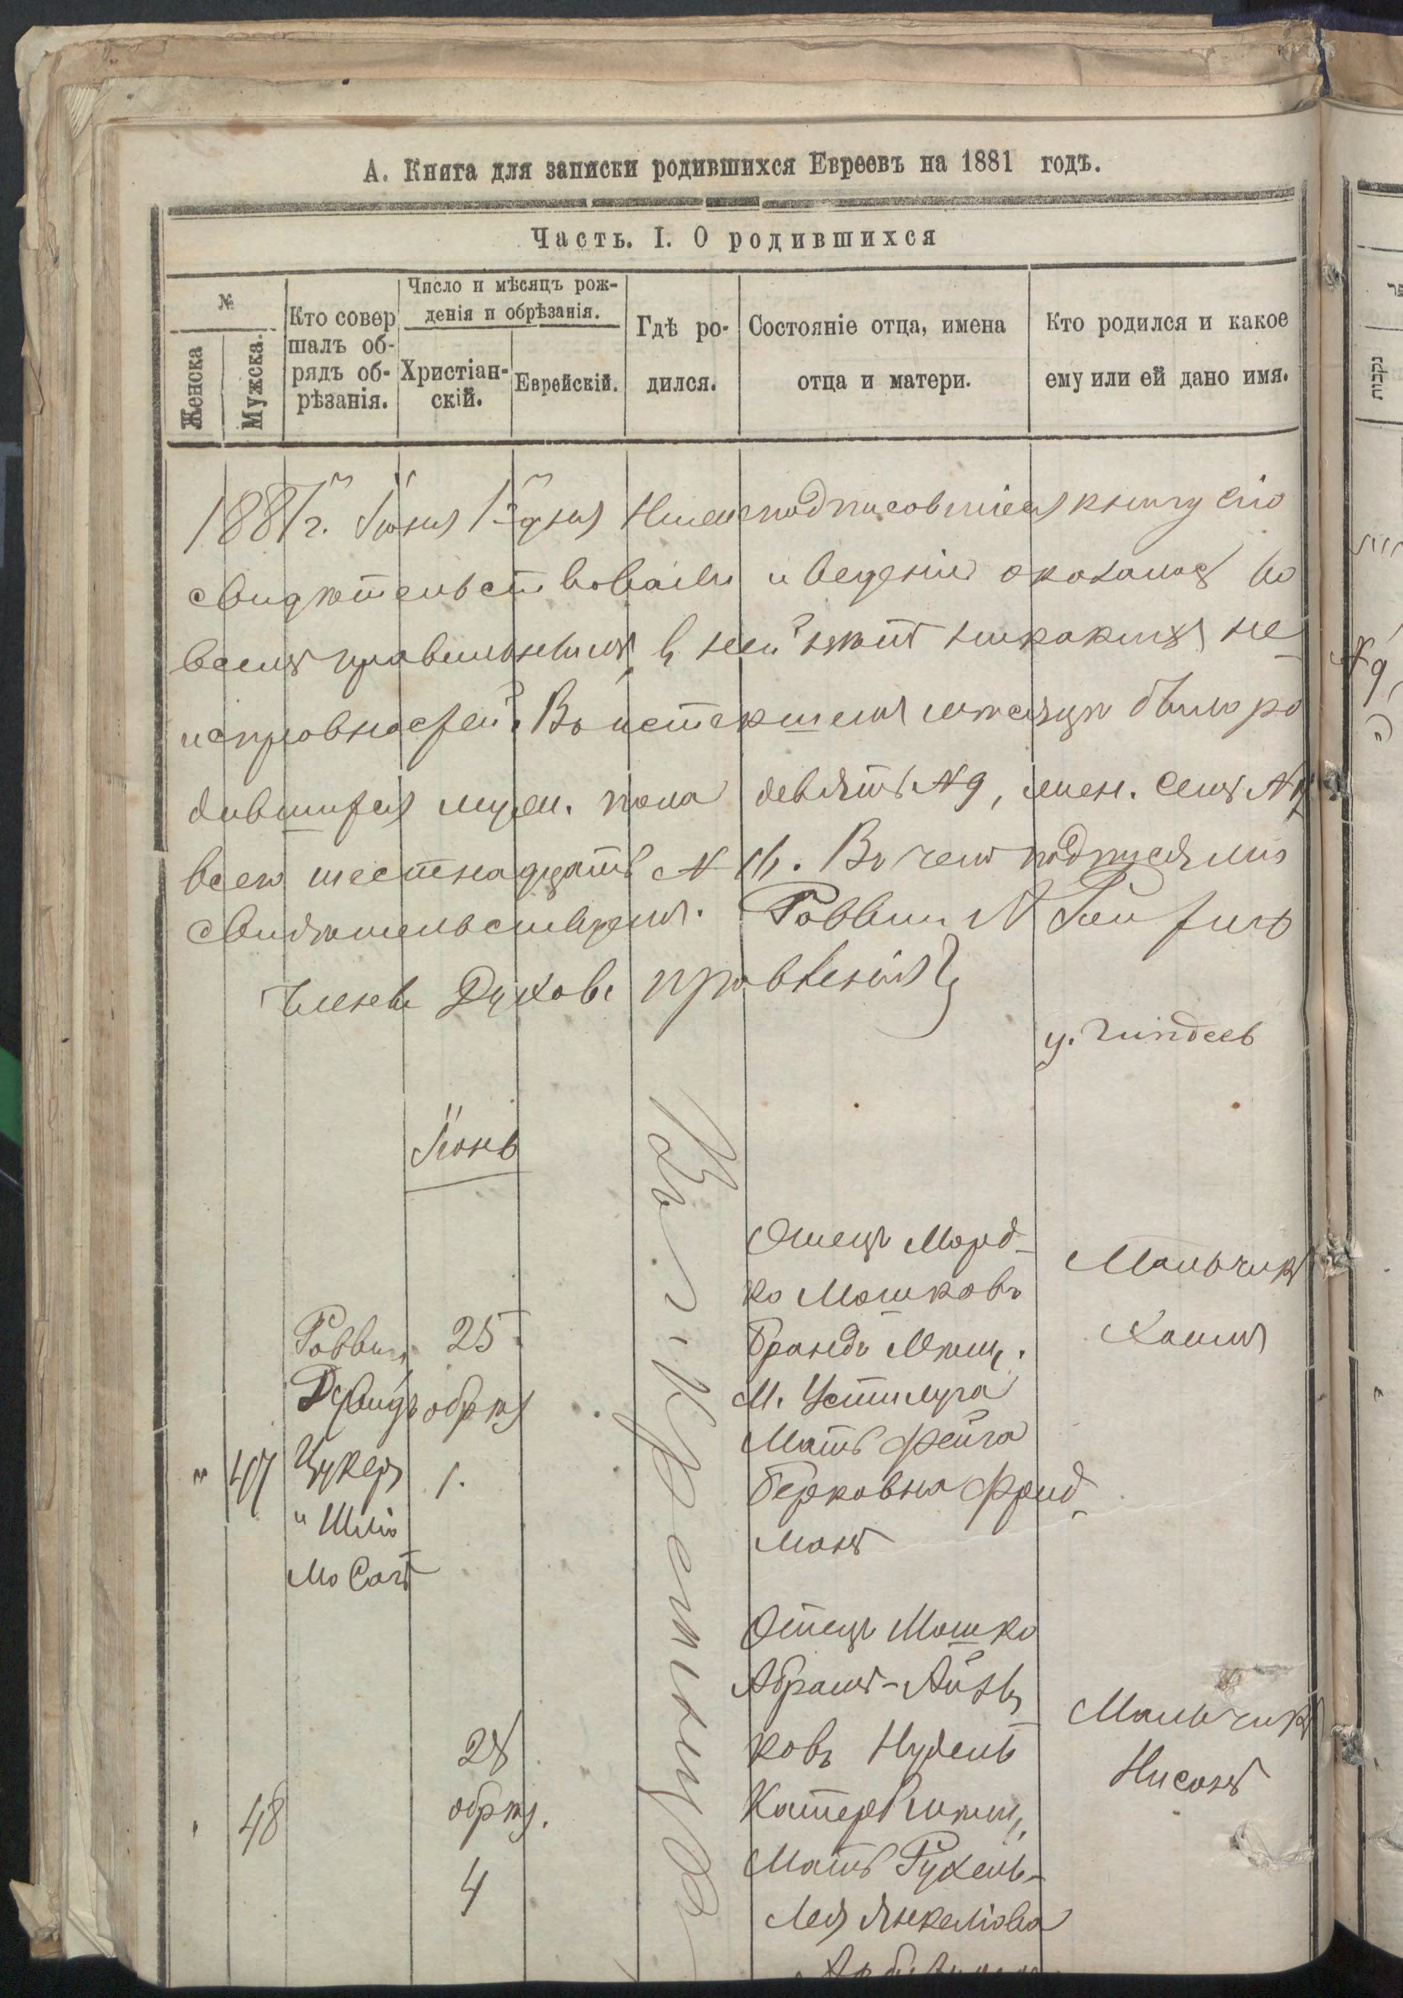 А. Книга для записки родившихся Евреевъ на 1881 годъ.
Часть. I. О родившихся
№
Женска
Мужска.
Кто совер
шалъ об-
рядъ об-
рѣзанія.
Число и мѣсяцъ рож-
денія и обрѣзанія.
Христіан-
скій.
Еврейскій.
Гдѣ ро-
дился.
Состояніе отца, имена
отца и матери.
Кто родился и какое
ему или ей дано имя.
1881 г. Іюня 1 дня книгу сію
свидѣтельствовали и веденіе оказалось во
всемъ правильнымъ, в ней нѣтъ никакихъ не-
исправностей. Въ истекшемъ мѣсяцѣ было ро
дившихся муж. пола девять № 9, жен. семь № 7
всего шестнадцать № 16. Въ чемъ подписямъ
свидѣтельствуемъ. Раввинъ
Члены Духов. правленія
Іюнь
Въ м. Крестител
" 47
Раввинъ
Давидъ
Цукеръ
и Шлiо
мо
25
обрѣз
1.
Отецъ Морд-
ко Мошковъ
Брандъ Мѣщ.
м. Устилуга
Мать Фейга
Берковна Фрид-
манъ
Мальчикъ
Хаимъ
48
28
обрѣз.
4
Отецъ Мошко
Абрамъ-Айзи
ковъ Нудель
Мать Рухель-
Лея Янкеліова
Мальчикъ
Нисонъ
נקבות